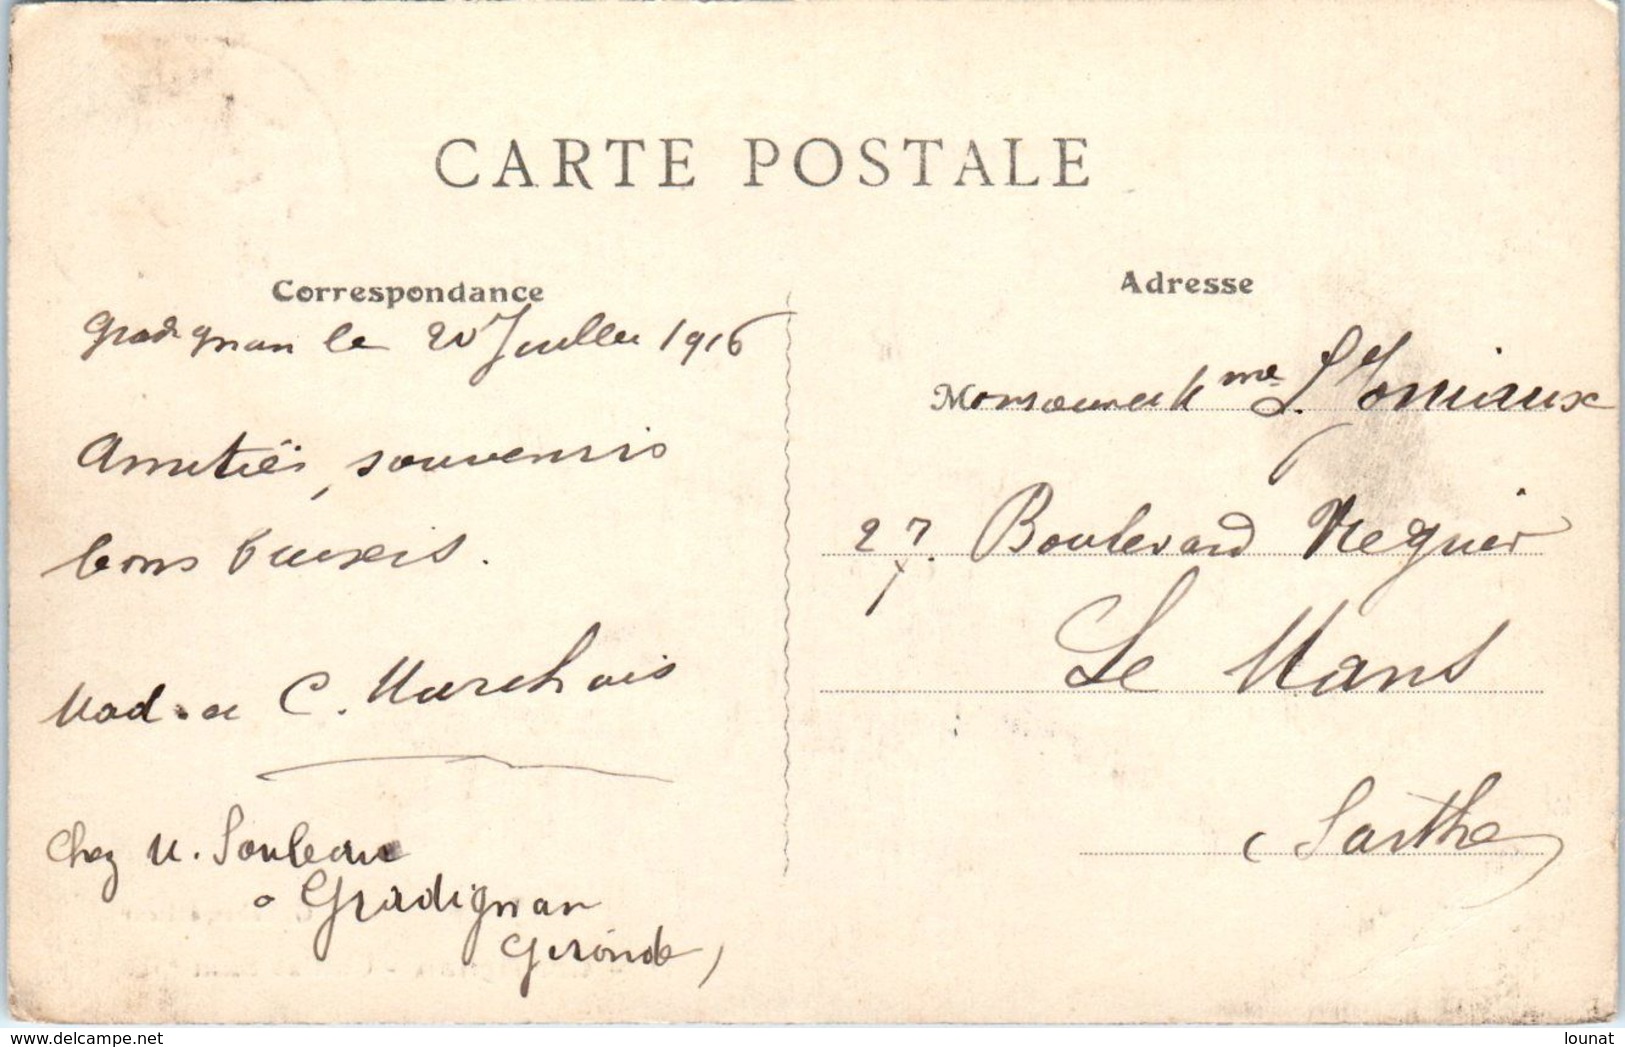 CARTE POSTALE
Correspondance
Gradignan le 20 Juillet 1916
Amitiés, souvenirs
bons baisers.
Mad. et C. Marchais
Chez M. Souleau
a Gradignan
Gironde,
Adresse
Monsieur et Mme L.
27. Boulevard Negrier
Le Mans
(Sarthe)
www.delcampe.net
lounat